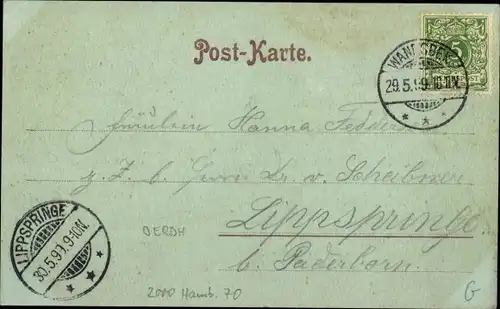 Post-Karte.
WANDSBEK
29.5.99.10-11N.
5
Fräulein Hanna Fedder
z. Z. b. Herrn Dr. v. Scheibner
Lippspringe
b. Paderborn.
LIPPSPRINGE
30.5.99.9-10N.
OERDH
2000 Hamb. 70
G